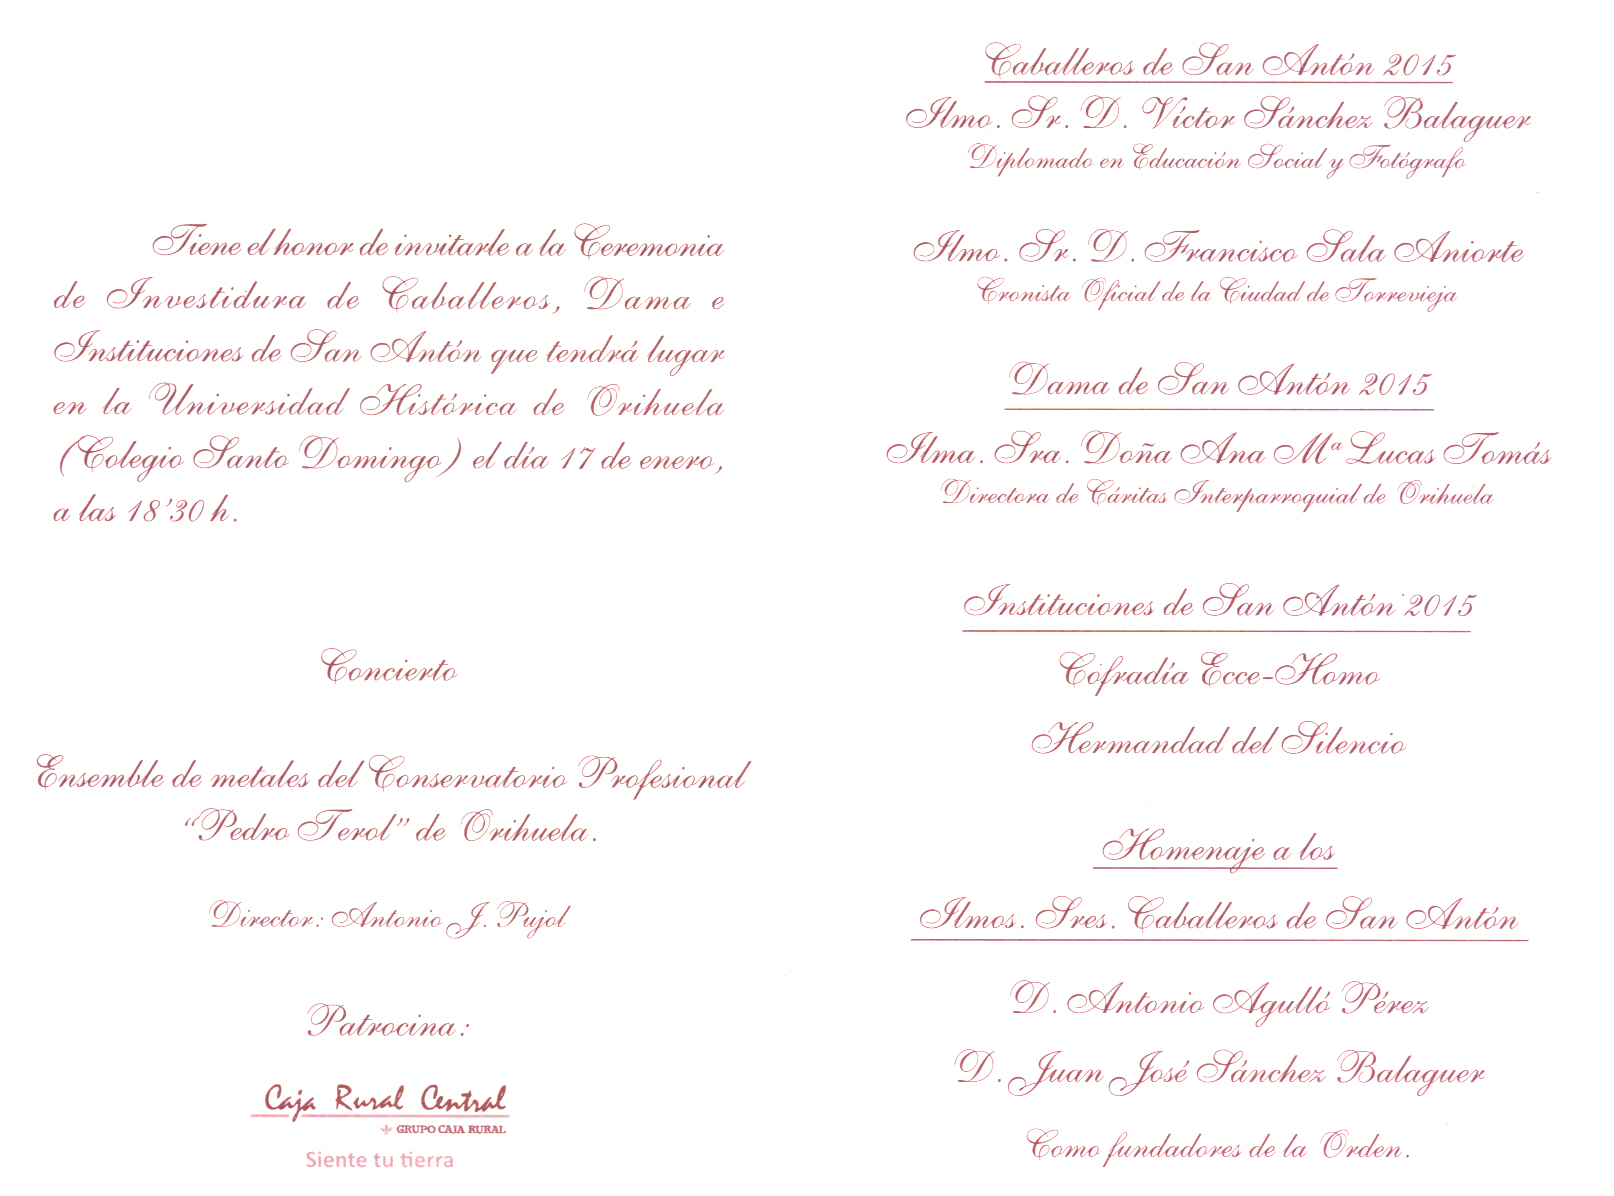 Tiene el honor de invitarle a la Ceremonia
de Investidura de Caballeros, Dama e
Instituciones de San Antón que tendrá lugar
en la Universidad Histórica de Orihuela
(Colegio Santo Domingo) el día 17 de enero,
a las 18'30 h.
Concierto
Ensemble de metales del Conservatorio Profesional
“Pedro Terol” de Orihuela.
Director: Antonio J. Pujol
Patrocina:
Caja Rural Central
GRUPO CAJA RURAL
Siente tu tierra
Caballeros de San Antón 2015
Ilmo. Sr. D. Víctor Sánchez Balaguer
Diplomado en Educación Social y Fotógrafo
Ilmo. Sr. D. Francisco Sala Aniorte
Cronista Oficial de la Ciudad de Torrevieja
Dama de San Antón 2015
Ilma. Sra. Doña Ana Mª Lucas Tomás
Directora de Cáritas Interparroquial de Orihuela
Instituciones de San Antón 2015
Cofradía Ecce-Homo
Hermandad del Silencio
Homenaje a los
Ilmos. Sres. Caballeros de San Antón
D. Antonio Agulló Pérez
D. Juan José Sánchez Balaguer
Como fundadores de la Orden.